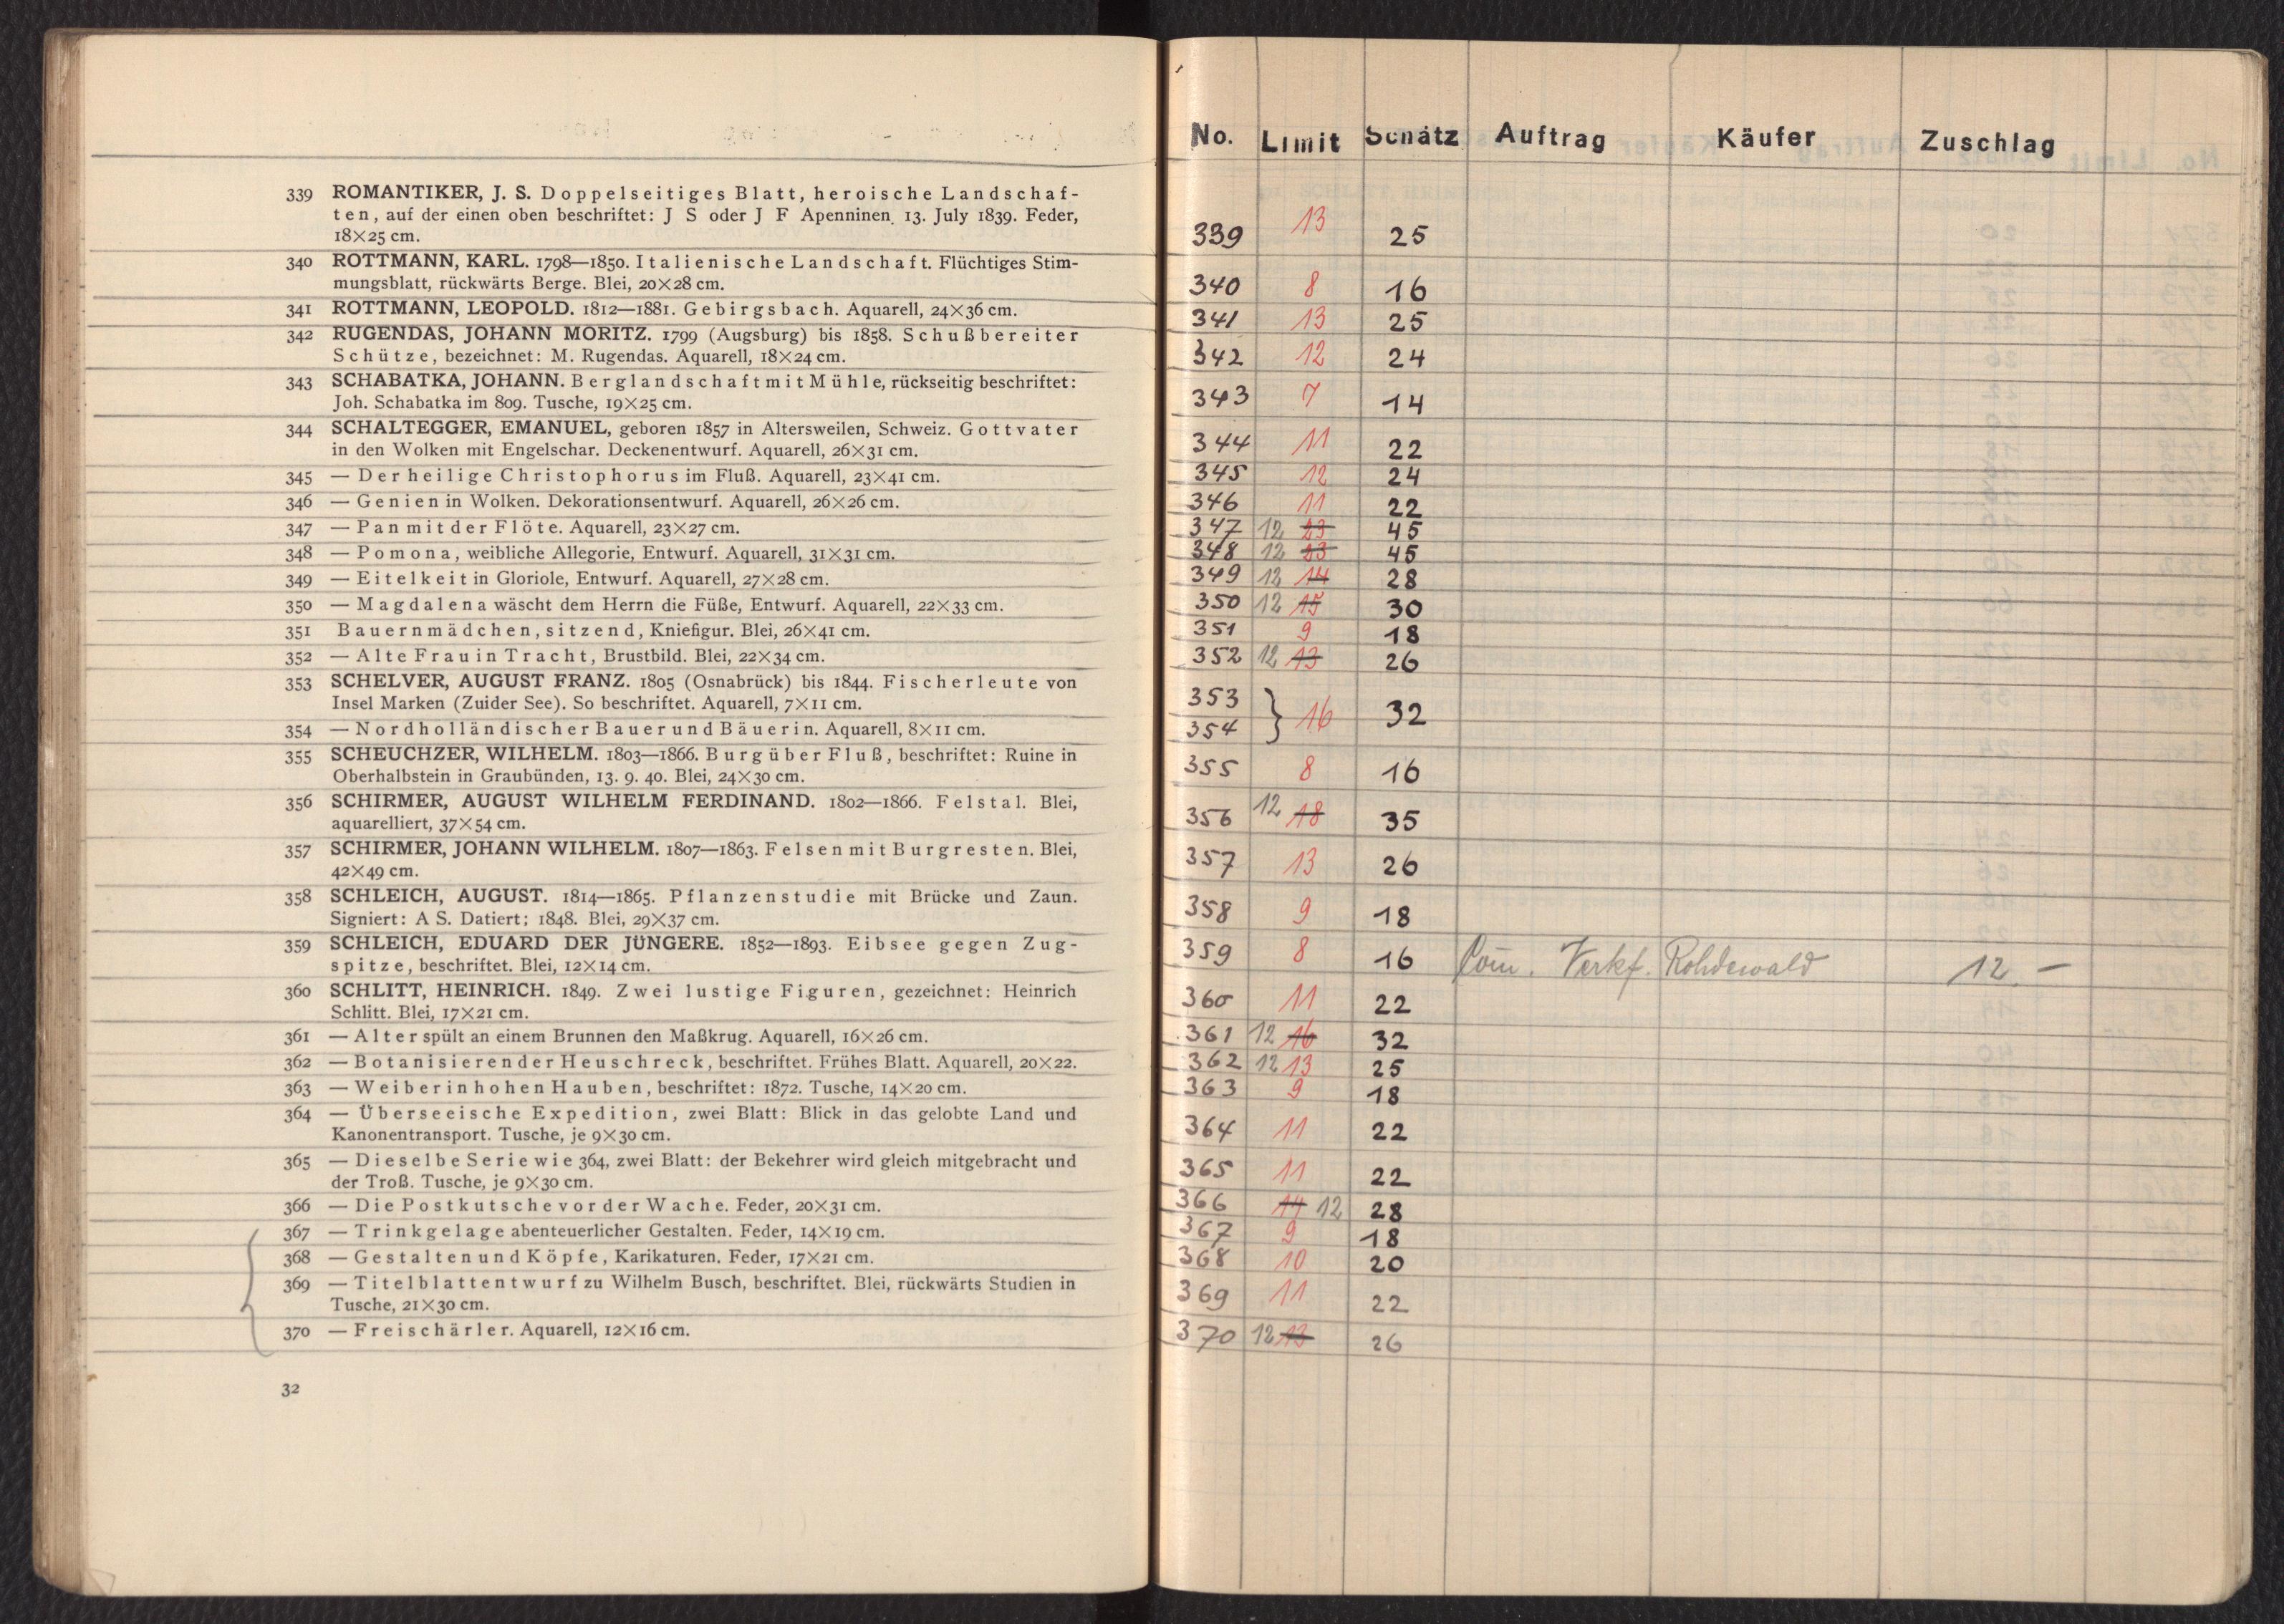 339 ROMANTIKER, J. S. Doppelseitiges Blatt, heroische Landschaf-
ten, auf der einen oben beschriftet: J S oder J F Apenninen. 13. July 1839. Feder,
18×25 cm.
340 ROTTMANN, KARL. 1798—1850. Italienische Landschaft. Flüchtiges Stim-
mungsblatt, rückwärts Berge. Blei, 20×28 cm.
341 ROTTMANN, LEOPOLD. 1812—1881. Gebirgsbach. Aquarell, 24×36 cm.
342 RUGENDAS, JOHANN MORITZ. 1799 (Augsburg) bis 1858. Schußbereiter
Schütze, bezeichnet: M. Rugendas. Aquarell, 18×24 cm.
343 SCHABATKA, JOHANN. Berglandschaft mit Mühle, rückseitig beschriftet:
Joh. Schabatka im 809. Tusche, 19×25 cm.
344 SCHALTEGGER, EMANUEL, geboren 1857 in Altersweilen, Schweiz. Gottvater
in den Wolken mit Engelschar. Deckenentwurf. Aquarell, 26×31 cm.
345 — Der heilige Christophorus im Fluß. Aquarell, 23×41 cm.
346 — Genien in Wolken. Dekorationsentwurf. Aquarell, 26×26 cm.
347 — Pan mit der Flöte. Aquarell, 23×27 cm.
348 — Pomona, weibliche Allegorie, Entwurf. Aquarell, 31×31 cm.
349 — Eitelkeit in Gloriole, Entwurf. Aquarell, 27×28 cm.
350 — Magdalena wäscht dem Herrn die Füße, Entwurf. Aquarell, 22×33 cm.
351 Bauernmädchen, sitzend, Kniefigur. Blei, 26×41 cm.
352 — Alte Frau in Tracht, Brustbild. Blei, 22×34 cm.
353 SCHELVER, AUGUST FRANZ. 1805 (Osnabrück) bis 1844. Fischerleute von
Insel Marken (Zuider See). So beschriftet. Aquarell, 7×11 cm.
354 — Nordholländischer Bauer und Bäuerin. Aquarell, 8×11 cm.
355 SCHEUCHZER, WILHELM. 1803—1866. Burg über Fluß, beschriftet: Ruine in
Oberhalbstein in Graubünden, 13. 9. 40. Blei, 24×30 cm.
356 SCHIRMER, AUGUST WILHELM FERDINAND. 1802—1866. Felstal. Blei,
aquarelliert, 37×54 cm.
357 SCHIRMER, JOHANN WILHELM. 1807—1863. Felsen mit Burgresten. Blei,
42×49 cm.
358 SCHLEICH, AUGUST. 1814—1865. Pflanzenstudie mit Brücke und Zaun.
Signiert: A S. Datiert; 1848. Blei, 29×37 cm.
359 SCHLEICH, EDUARD DER JÜNGERE. 1852—1893. Eibsee gegen Zug-
spitze, beschriftet. Blei, 12×14 cm.
360 SCHLITT, HEINRICH. 1849. Zwei lustige Figuren, gezeichnet: Heinrich
Schlitt. Blei, 17×21 cm.
361 — Alter spült an einem Brunnen den Maßkrug. Aquarell, 16×26 cm.
362 — Botanisierender Heuschreck, beschriftet. Frühes Blatt. Aquarell, 20×22.
363 — Weiber in hohen Hauben, beschriftet: 1872. Tusche, 14×20 cm.
364 — Überseeische Expedition, zwei Blatt: Blick in das gelobte Land und
Kanonentransport. Tusche, je 9×30 cm.
365 — Dieselbe Serie wie 364, zwei Blatt: der Bekehrer wird gleich mitgebracht und
der Troß. Tusche, je 9×30 cm.
366 — Die Postkutsche vor der Wache. Feder, 20×31 cm.
367 — Trinkgelage abenteuerlicher Gestalten. Feder, 14×19 cm.
368 — Gestalten und Köpfe, Karikaturen. Feder, 17×21 cm.
369 — Titelblattentwurf zu Wilhelm Busch, beschriftet. Blei, rückwärts Studien in
Tusche, 21×30 cm.
370 — Freischärler. Aquarell, 12×16 cm.
32
No. Limit Schätz Auftrag Käufer Zuschlag
339 13 25
340 8 16
341 13 25
342 12 24
343 7 14
344 11 22
345 12 24
346 11 22
347 12 23 45
348 12 23 45
349 12 14 28
350 12 15 30
351 9 18
352 12 13 26
353
354 } 16 32
355 8 16
356 12 18 35
357 13 26
358 9 18
359 8 16 Com. Verkf. Rohdewald 12.—
360 11 22
361 12 16 32
362 12 13 25
363 9 18
364 11 22
365 11 22
366 14 12 28
367 9 18
368 10 20
369 11 22
370 12 13 26